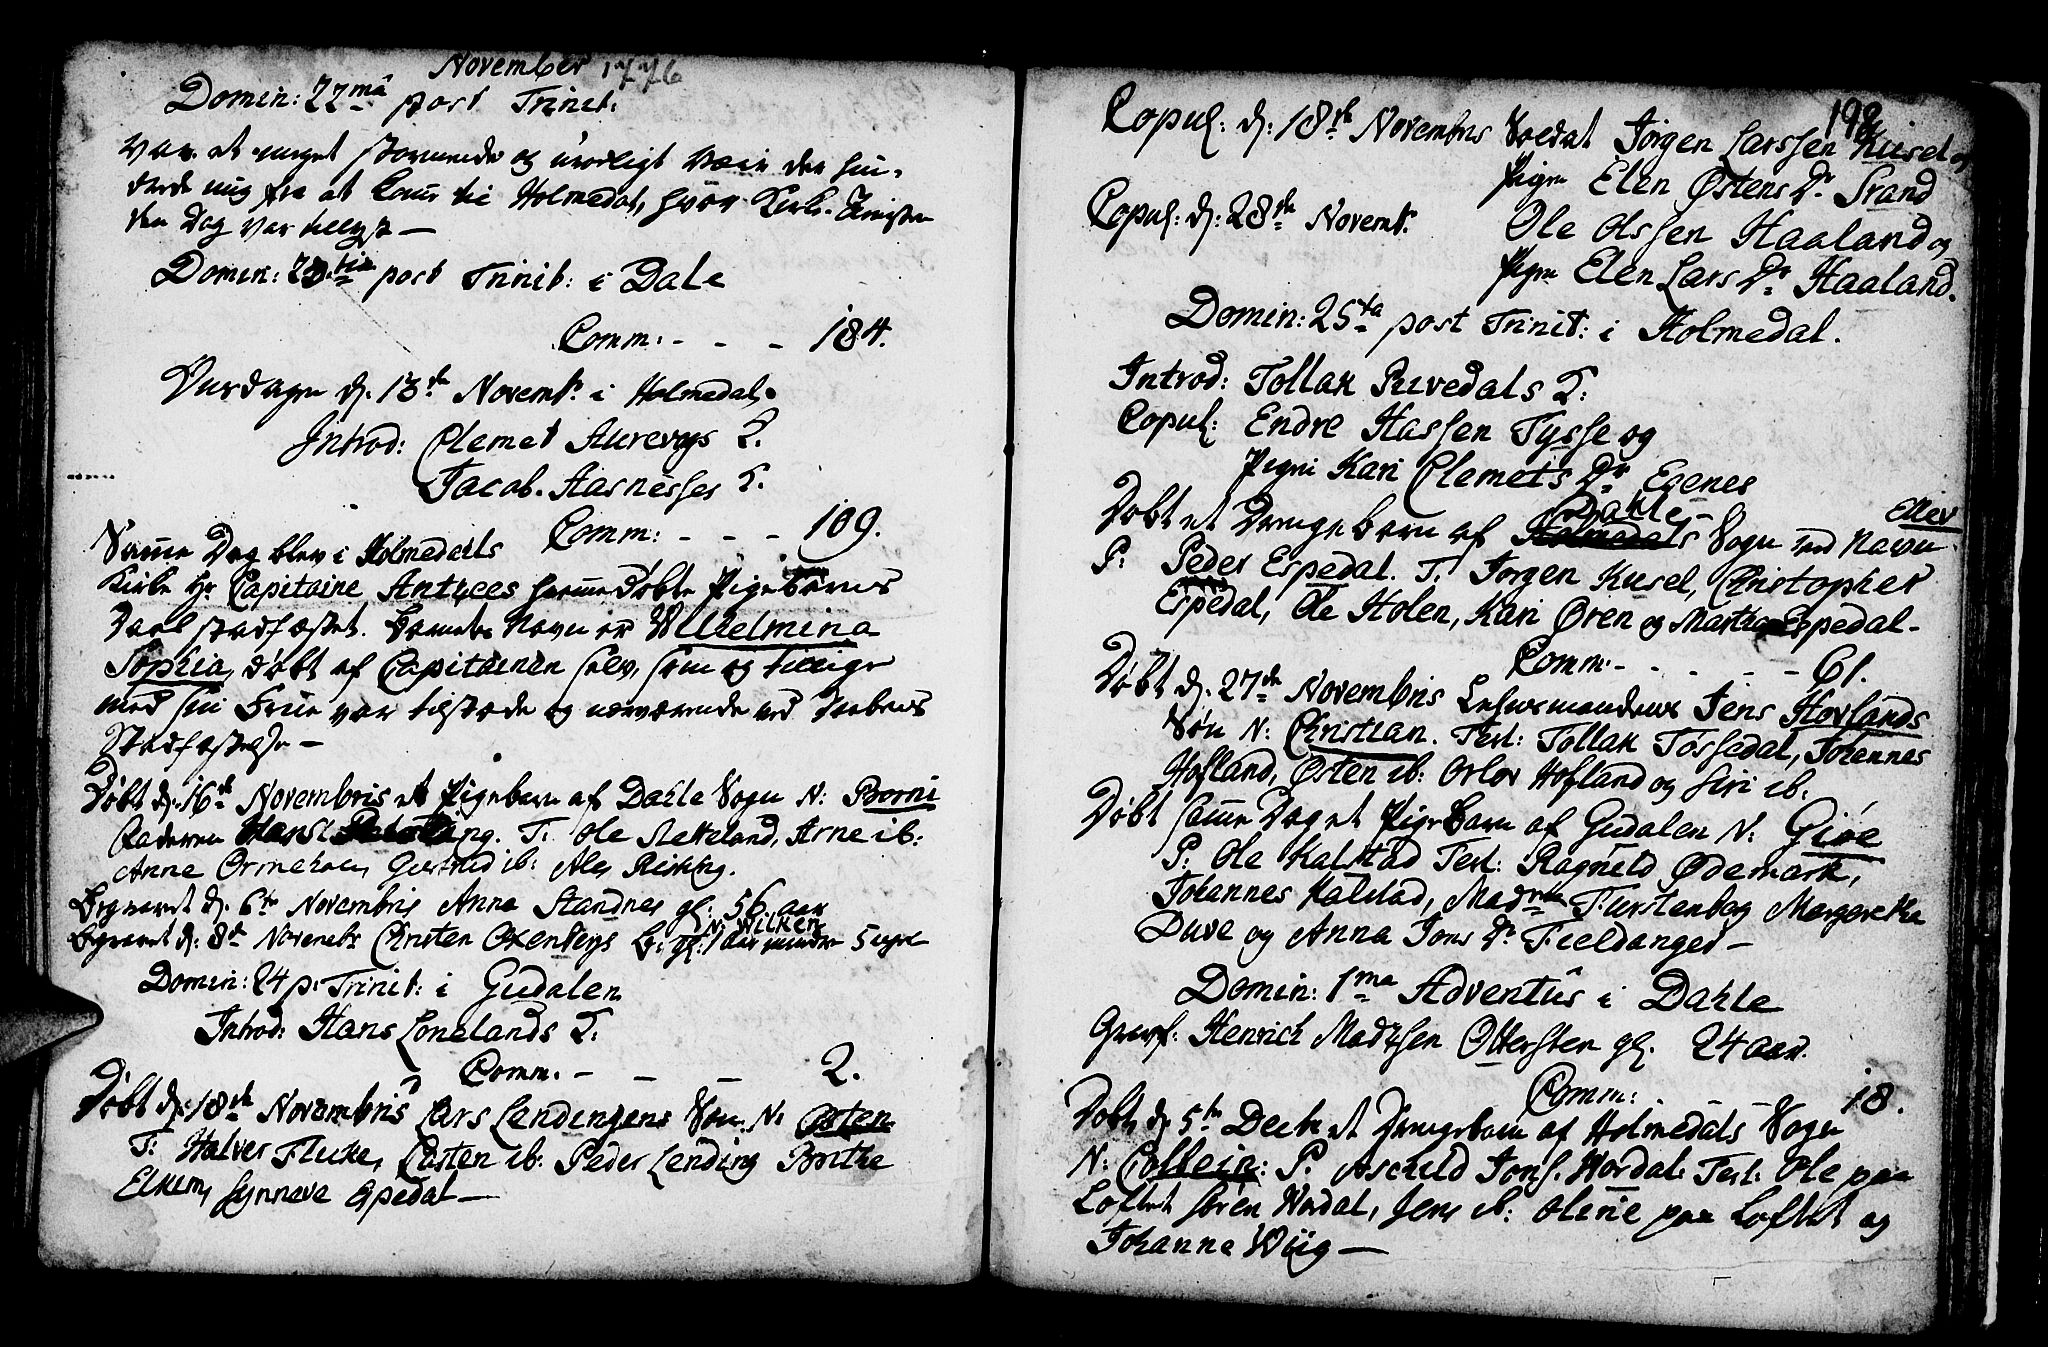 November 1776
Domin: 22ma post Trinit:
Var et meget stormende og uroeligt Veir der hin-
drede mig fra at komme til Holmedal, hvor Kirke-Tienisten
den Dag var tillyst —
Domin: 23tia post Trinit: i Dale
Comm: - - - 184.
Onsdagen d. 13de Novembr i Holmedal.
Introd: Clemet Aurevigs K.
Jacob Aarnesses K.
Comm: - - - 109.
Samme Dag blev i Holmedahls
Kirke Hr Capitaine hiemmedøbte Pigebarns
Daab stadfæstet. Barnets Navn er Wilhelmina
Sophia, døbt af Capitainen selv, som og tillige
med sin Frue var tilstæde og nærværende ved Daabens
Stadfæstelse —
Døbt d. 16de Novembris et Pigebarn af Dahle Sogn N: Borni
Faderen Hans T: Ole Sletteland, Arne ib:
Anne Ormehoen, Giertrud ib: Ales Risting.
Begravet d. 6te Novembris Anna Standnes gl: 56 aar
N: Wilken
Begravet d: 8de Novembr Christen Oxenbergs B: gl: 1 aar mindre 5 uger
Domin: 24 p: Trinit: i Gudalen
Introd: Hans Lonelands K.
Comm. - - - 2.
Døbt d: 18de Novembris Lars Lendingens Søn N: Osten
T: Halver Flecke, Casten ib: Peder Lending Brithe
Elkem, Synneve Espedal —
192
Copul: d: 18de Novembris Soldat Jørgen Larssen Kusel og
Pigen Elen Østens Dr Strand
Copul: d: 28de Novembr. Ole Olssen Haaland og
Pigen Elen Lars Dr Haaland.
Domin: 25ta post Trinit: i Holmedal.
Introd: Tollak Puvedals K:
Copul: Endre Hassen Tysse og
Pigen Kari Clemets Dr Egenes
Dahle Ellev
Døbt et Drengebarn af Holmedals Sogn ved Navn
P: Peder Espedal. T: Jorgen Kusel, Christopher
Espedal, Ole Holen, Kari Øren og Martha Espedal-
Comm: - - - - 61.
Døbt d. 27de Novembris Lehnsmandens Jens Hovlands
Søn N: Christian. Test: Tollak Tossedal, Johannes
Hofland, Østen ib: Orlov Hofland og Siri ib:
Døbt samme Dag et Pigebarn af Gudalen N: Giøe
P: Ole Kalstad Test: Ragneld Ødemark,
Johannes Kalstad, Madme Furstenberg Margrethe
Duve og Anna Jons Dr Fieldanger —
Domin: 1ma Adventus i Dahle
Gravf: Henrich Madssen Ottersten gl. 24 aar.
Comm: - - 18.
Døbt d 5te Decbr et Drengebarn af Holmedals Sogn
N: Colbein: P. Ascheld Jons. Wordal: Test: Ole paa
Loftet Søren Wordal, Jens ib: Oline paa Loftet og
Johanne Wiig —